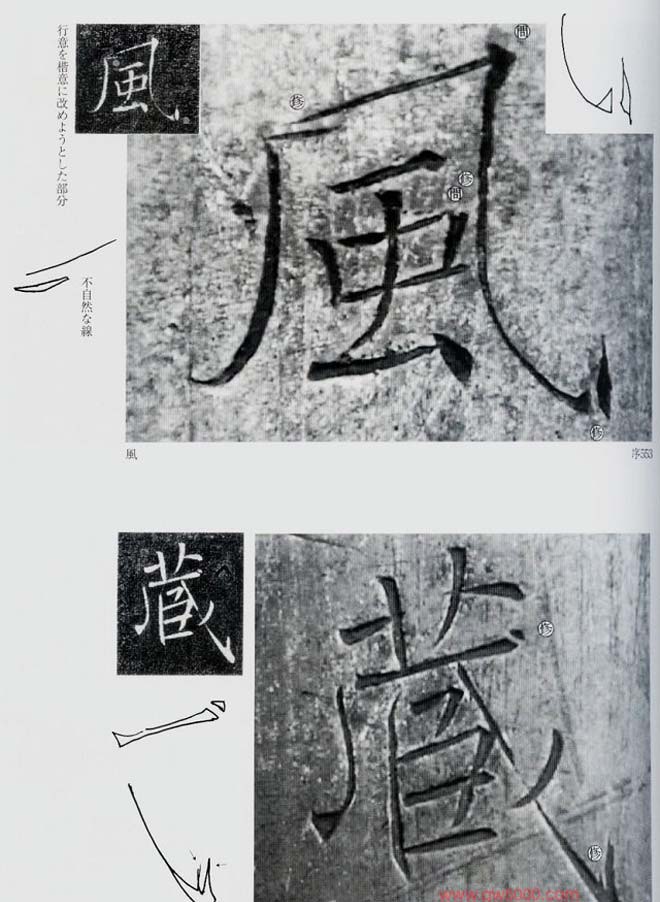 行意を楷意に改めようとした部分
風
修
間
修
間
風
不自然な線
修
風
序353
蔵
修
蔵
修